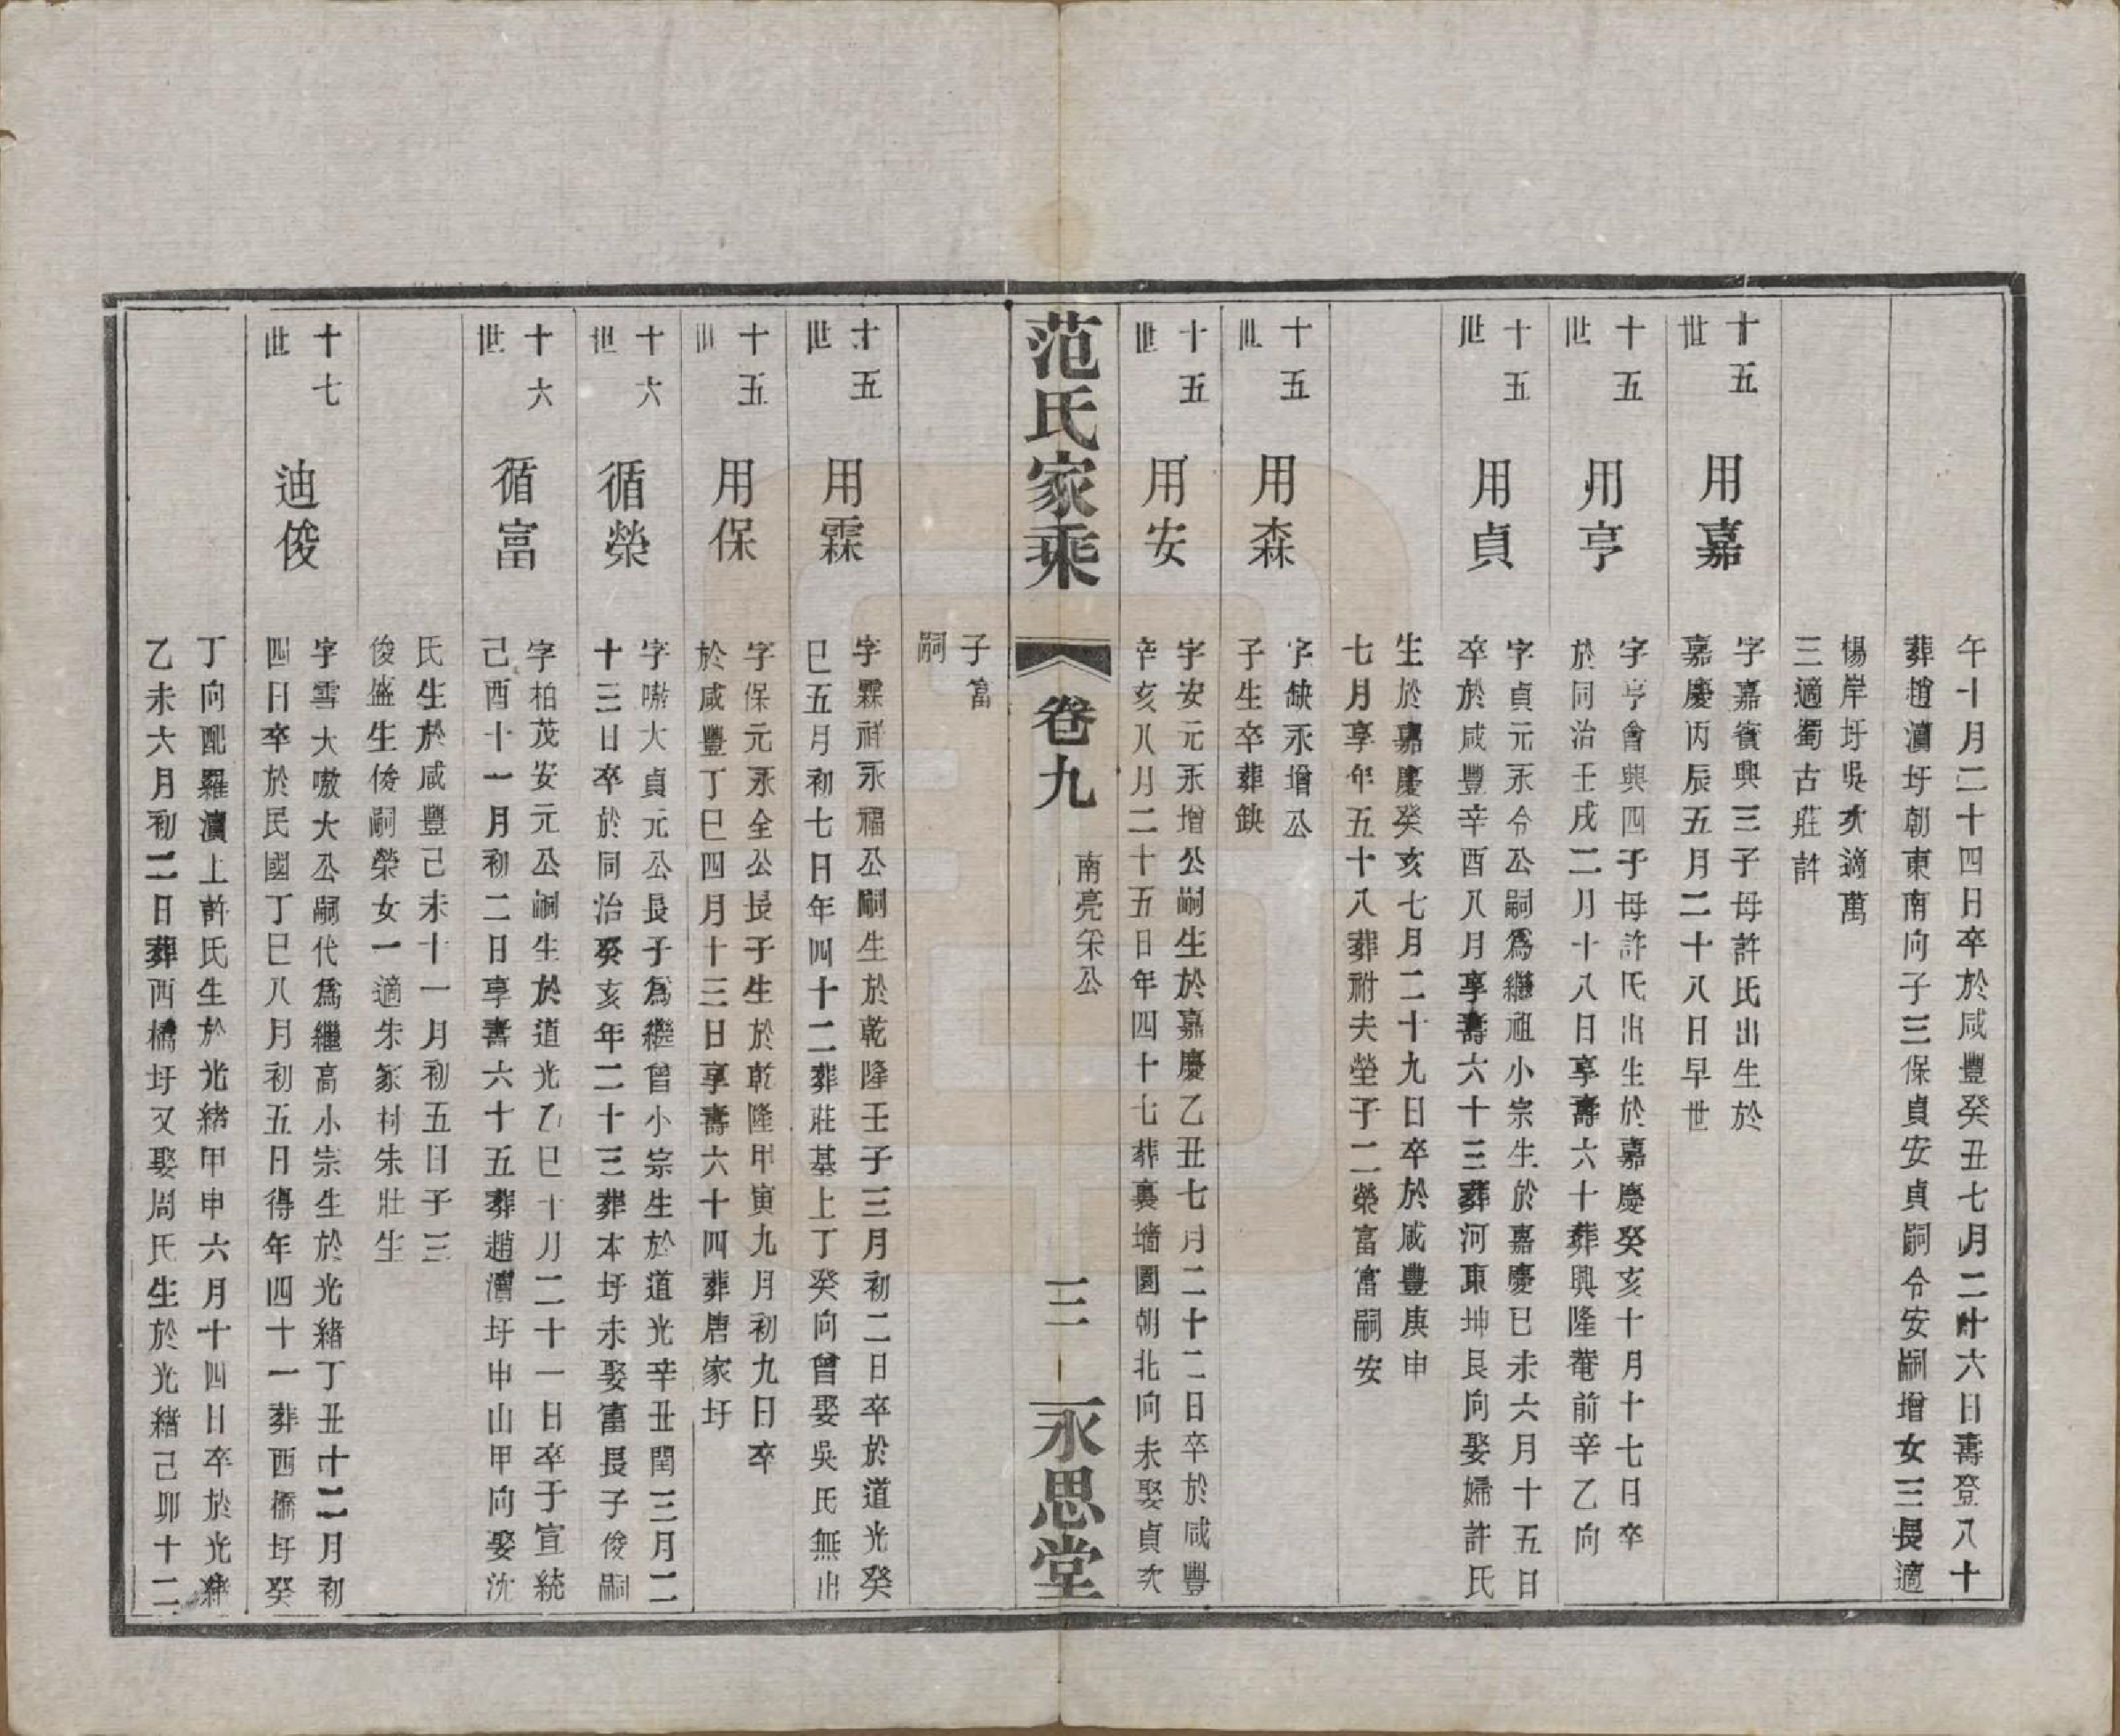 午十月二十四日卒於咸豐癸丑七月二十六日壽登八十
葬趙瀆圩朝東南向子三保貞安貞嗣令安嗣增女三長適
楊岸圩吳次適萬
三適蜀古莊許
十五世 用嘉 字嘉賓興三子母許氏出生於
嘉慶丙辰五月二十八日早世
十五世 用亨 字亨會興四子母許氏出生於嘉慶癸亥十月十七日卒
於同治壬戌二月十八日享壽六十葬興隆菴前辛乙向
十五世 用貞 字貞元永令公嗣爲繼祖小宗生於嘉慶巳未六月十五日
卒於咸豐辛酉八月享壽六十三葬河東坤艮向娶婦許氏
生於嘉慶癸亥七月二十九日卒於咸豐庚申
七月享年五十八葬祔夫塋子二榮富富嗣安
十五世 用森 字缺永增公
子生卒葬缺
十五世 用安 字安元永增公嗣生於嘉慶乙丑七月二十二日卒於咸豐
辛亥八月二十五日年四十七葬裏墻園朝北向未娶貞次
范氏家乘 卷九 南亮宋公 三 永思堂
子富
嗣
十五世 用霖 字霖祥永福公嗣生於乾隆壬子三月初二日卒於道光癸
巳五月初七日年四十二葬莊基上丁癸向曾娶吳氏無出
十五世 用保 字保元永全公長子生於乾隆甲寅九月初九日卒
於咸豐丁巳四月十三日享壽六十四葬唐家圩
十六世 循榮 字嗷大貞元公長子爲繼曾小宗生於道光辛丑閏三月二
十三日卒於同治癸亥年二十三葬本圩未娶富長子俊嗣
十六世 循富 字柏茂安元公嗣生於道光乙巳十月二十一日卒于宣統
己酉十一月初二日享壽六十五葬趙瀆圩申山甲向娶沈
氏生於咸豐己未十一月初五日子三
俊盛生俊嗣榮女一適朱家村朱壯生
十七世 迪俊 字雪大嗷大公嗣代爲繼高小宗生於光緒丁丑十二月初
四日卒於民國丁巳八月初五日得年四十一葬西橋圩癸
丁向配羅瀆上許氏生於光緒甲申六月十四日卒於光緒
乙未六月初二日葬西橋圩又娶周氏生於光緒己卯十二